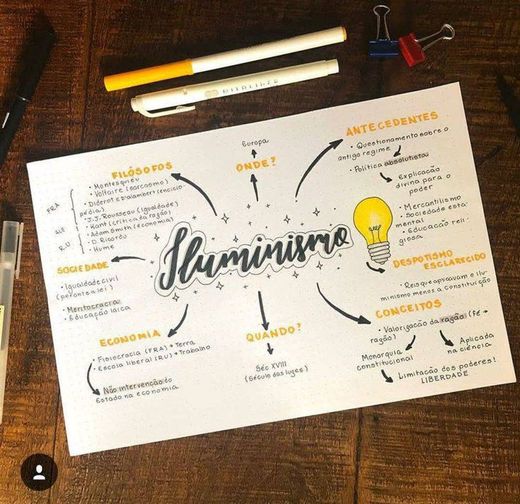 MILDLINER
Iluminismo
FILÓSOFOS
• Montesquieu
• Voltaire (sarcasmo)
• Diderot e D'alambert (enciclo
pédia)
• J.J. Rousseau (igualdade)
• Kant (crítica da razão)
• Adam Smith (economia)
• D. Ricardo
• Hume
FRA
ALE
R.U
Europa
ONDE?
ANTECEDENTES
• Questionamento sobre o
antigo regime
• Política absolutista
Explicação
divina para o
poder
• Mercantilismo
• Sociedade esta-
mental
• Educação reli-
giosa
DESPOTISMO
ESCLARECIDO
• Reis que apoiavam o ilu-
minismo menos a constituição
CONCEITOS
• Valorização da razão (fé →
razão)
Monarquia
constitucional
Aplicada
na ciência
Limitação dos poderes!
LIBERDADE
QUANDO?
Séc XVIII
(Século das luzes)
ECONOMIA
• Fisiocracia (FRA) → Terra
• Escola liberal (RU) → Trabalho
Não intervenção do
Estado na economia
SOCIEDADE
• Igualdade civil
(perante a lei)
• Meritocracia
• Educação laica